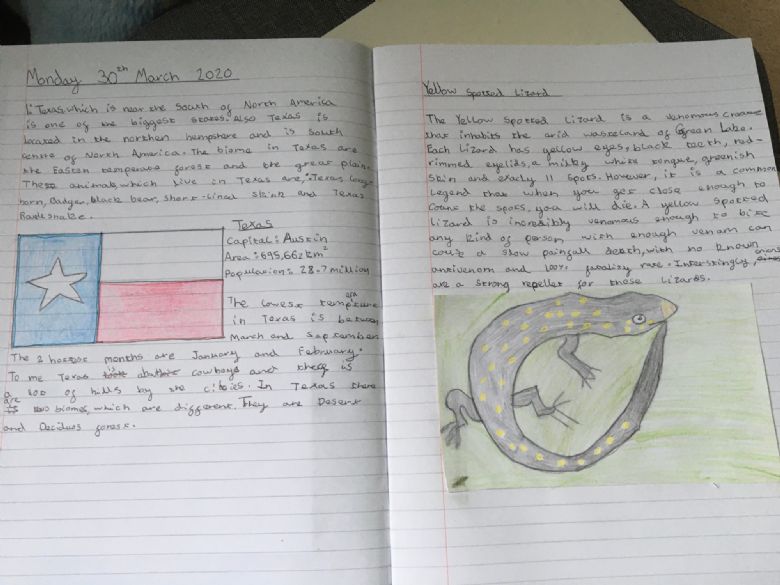 Monday 30th March 2020
1: Texas which is near the South of North America
is one of the biggest states. Also Texas is
located in the northen hempshere and is South
centre of North America. The biome in Texas are
the Eastern temperate forest and the great plain.
These animals, which live in Texas are,: Texas Long-
horn, Badger, black bear, short-lined skink and Texas
Ratlesnake.
Texas
Capital: Austin
Area: 695,662 km²
Population: 28.7 million
The lowest tempture
in Texas is between
March and September
The 2 hottest months are January and February.
To me Texas is cowboys and there is
a lot of hills by the cities. In Texas there
are two biomes, which are different. They are Desert
and Decidus forest.
Yellow Spotted Lizard
The Yellow Spotted Lizard is a venomous creature
that inhabits the arid wasteland of Green Lake.
Each Lizard has yellow eyes, black teeth, red-
rimmed eyelids, a milky white tongue, greenish
Skin and exacly 11 spots. However, it is a common
Legend that when you get close enough to
count the spots, you will die. A yellow spotted
Lizard is incredibly venomous enough to bite
any kind of person, with enough venam can
a slow painfull death, with no known
antivenom and 100% rate. Interstingly onions
are a strong repeller for these Lizards.